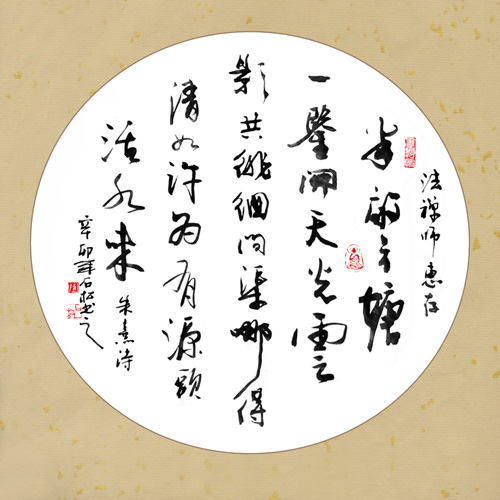 法禅师惠存
半畝方塘
一鑒開天光雲
影共徘徊問渠哪得
清如许為有源頭
活水来
朱熹诗
辛卯年石松书之